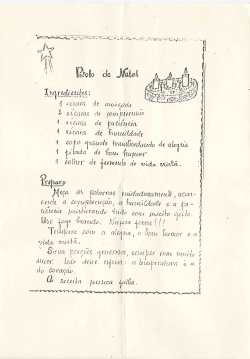 Bolo de Natal
Ingredientes:
1 xícara de amizade
2 xícaras de compreensão
1 xícara de paciência
1 xícara de humildade
1 copo grande transbordando de alegria
1 pitada de bom humor
1 colher de fermento de vida cristã.
Preparo
Meça as palavras cuidadosamente, acres-
cente a compreensão, a humildade e a pa-
ciência misturando tudo com muito jeito.
Use fogo brando. Nunca ferva!!!
Tempere com a alegria, o bom humor e a
vida cristã.
Sirva porções generosas, sempre com muito
amor. Não deixe esfriar. a temperatura é a
do coração.
A receita nunca falha.